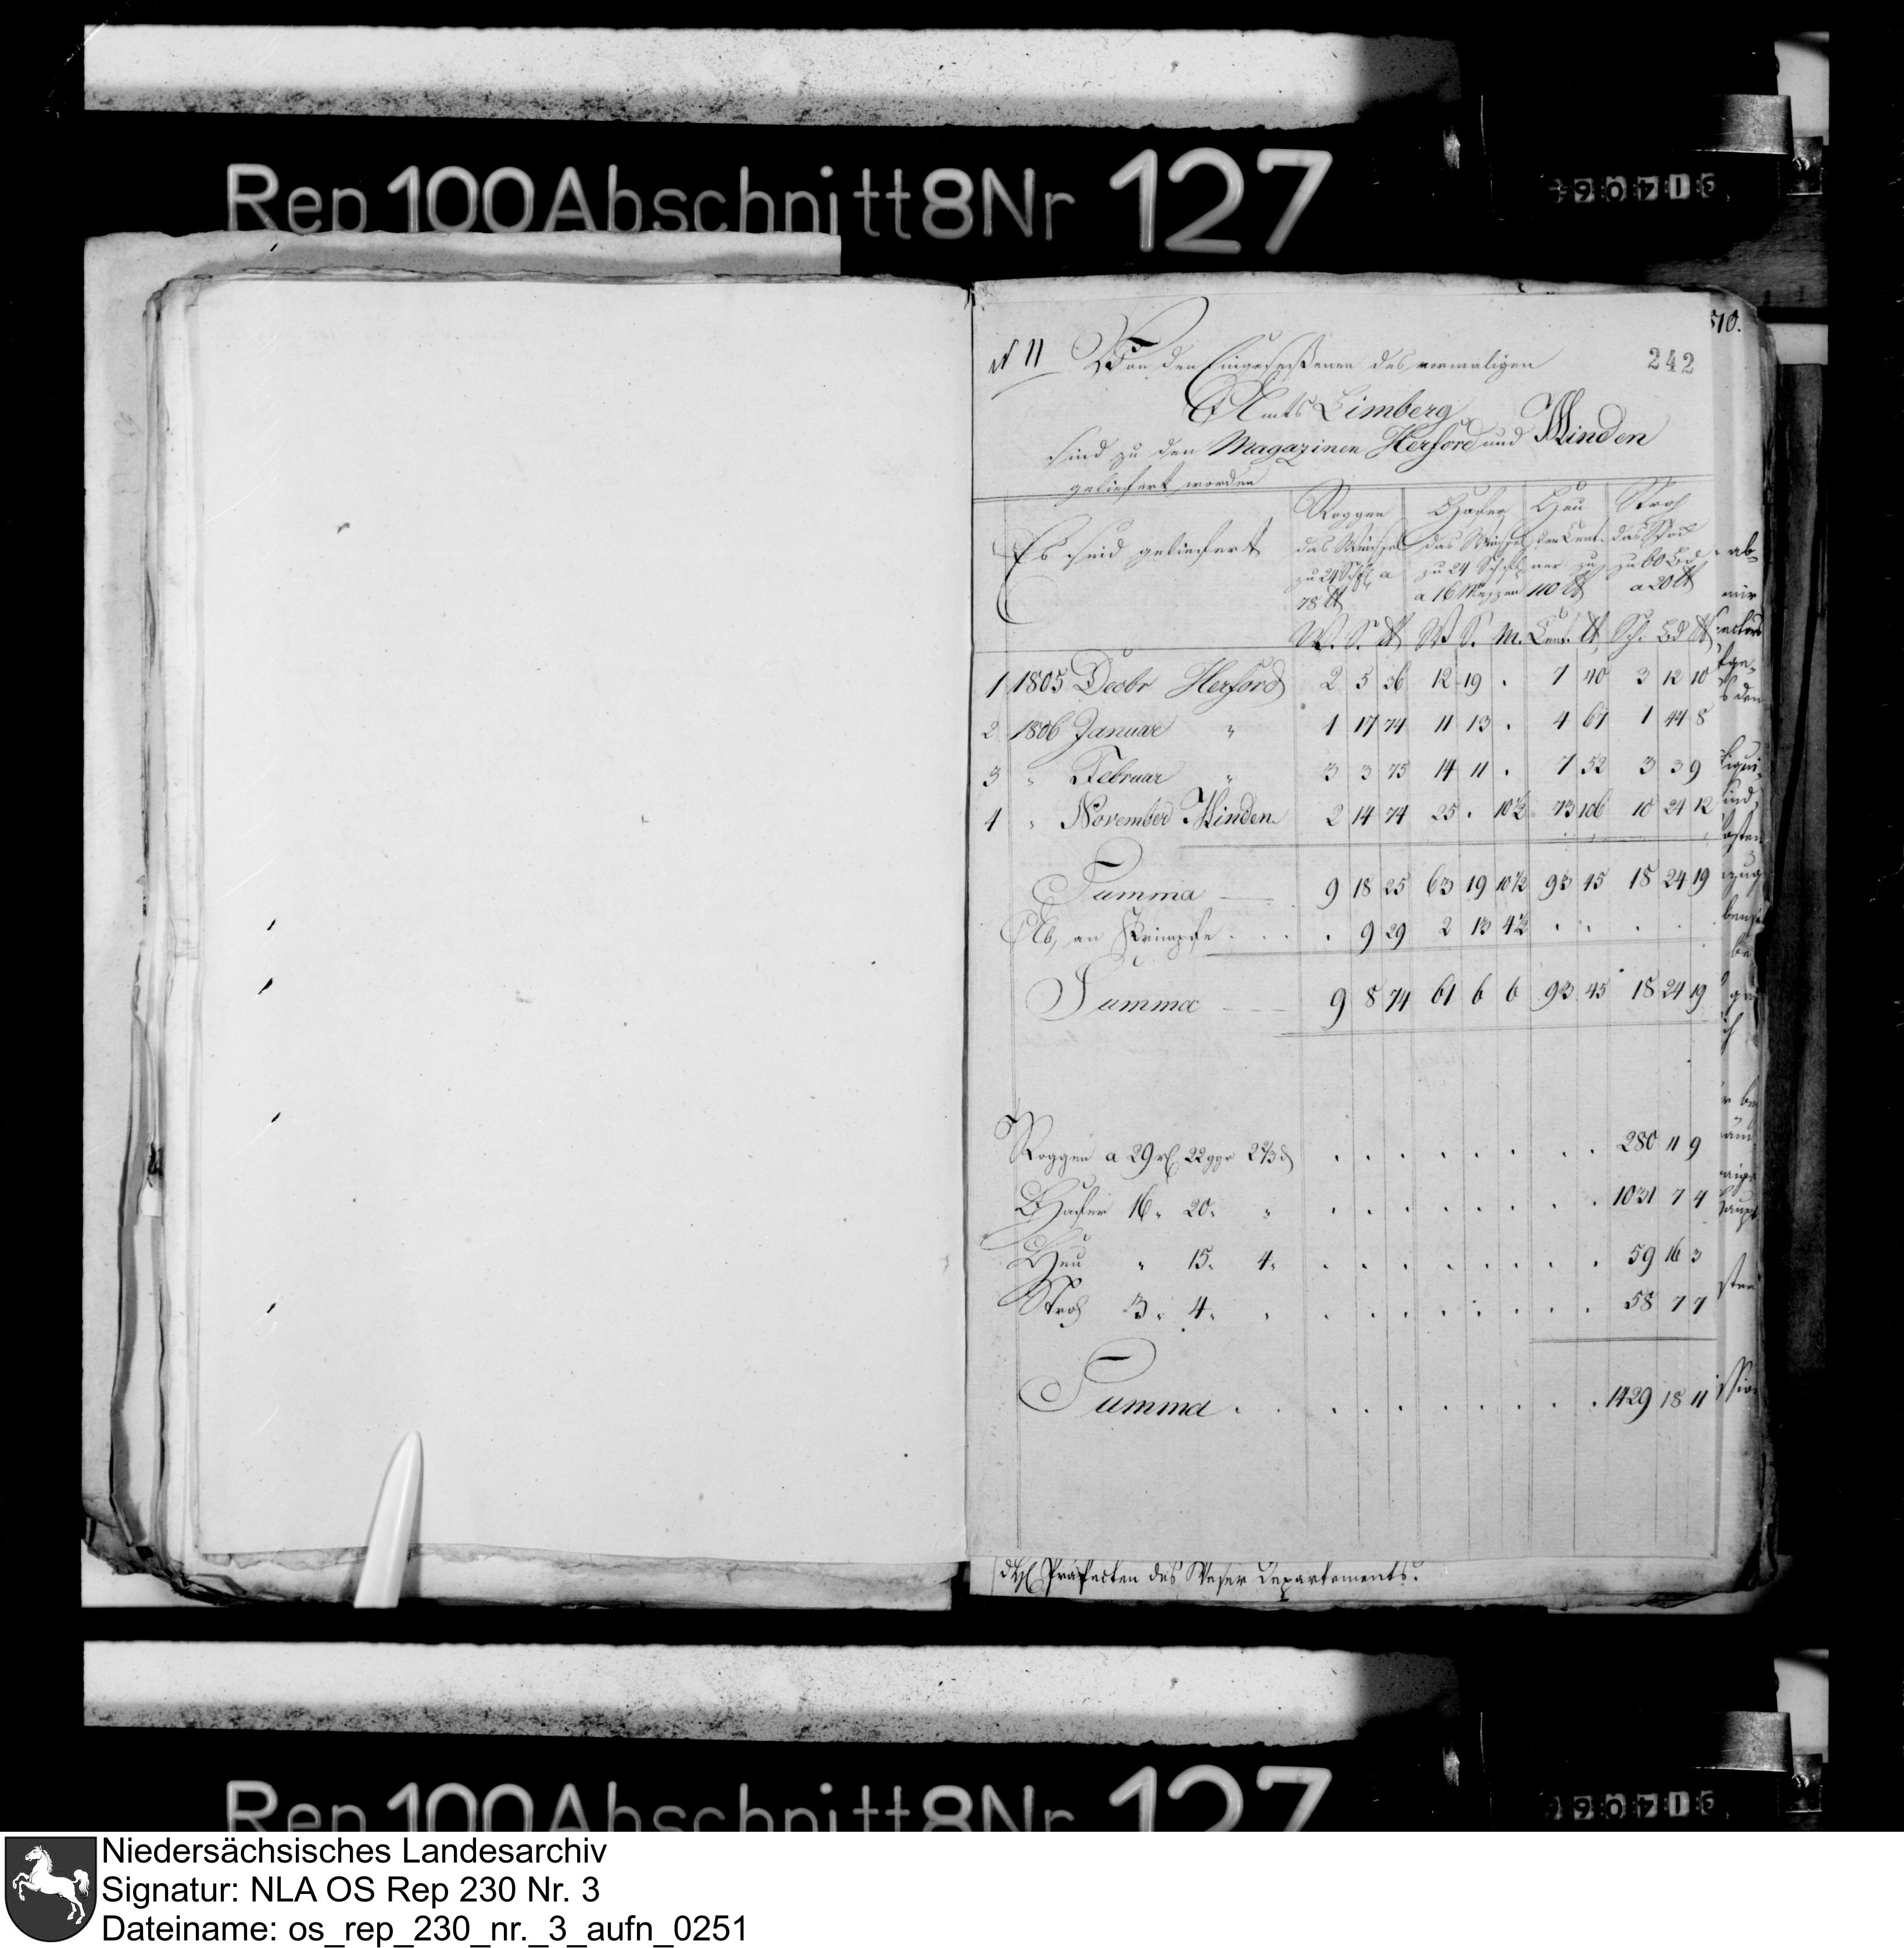 Rep 100 Abschnitt 8 Nr 127
510.
242
N 11 Von den Eingeseßenen des vormaligen
Amts Limberg
sind zu den Magazinen Herford und Minden
geliefert worden
Es sind geliefert
Roggen das Winspel zu 24 Schfl a 78 ℔
Hafer das Winspel zu 24 Schfl a 16 Mezzen
Heu der Cent- ner zu 110 ℔
Stroh das Schock zu 60 Bd a 20 ℔
W. S. ℔ W S. M. Cent. ℔ Sch. Bd ℔
1 1805 Decbr Herford 2 5 36 12 19 . 7 40 3 12 10
2 1806 Januar " 1 17 74 11 13 . 4 67 1 44 8
3 " Februar " 3 3 75 14 11 . 7 52 3 3 9
4 " November Minden 2 14 74 25 . 10½ 73 106 10 24 12
Summa 9 18 25 63 19 10½ 93 45 18 24 19
Ab, an Krimpfe . . . . 9 29 2 13 4½ . . . . .
Summa 9 8 74 61 6 6 93 45 18 24 19
Roggen a 29 rl 22 ggr 2⅔ d . . . . . . . . 280 11 9
Hafer 16 " 20 " " . . . . . . . . . 1031 7 4
Heu " 15 " 4 " . . . . . . . . . 59 16 3
Stroh 3 " 4 " " . . . . . . . . . 58 7 7
Summa . . . . . . . . . . . 1429 18 11
Präfecten des Weser Departements.
Rep 100 Abschnitt 8 Nr 127
Niedersächsisches Landesarchiv
Signatur: NLA OS Rep 230 Nr. 3
Dateiname: os_rep_230_nr._3_aufn_0251